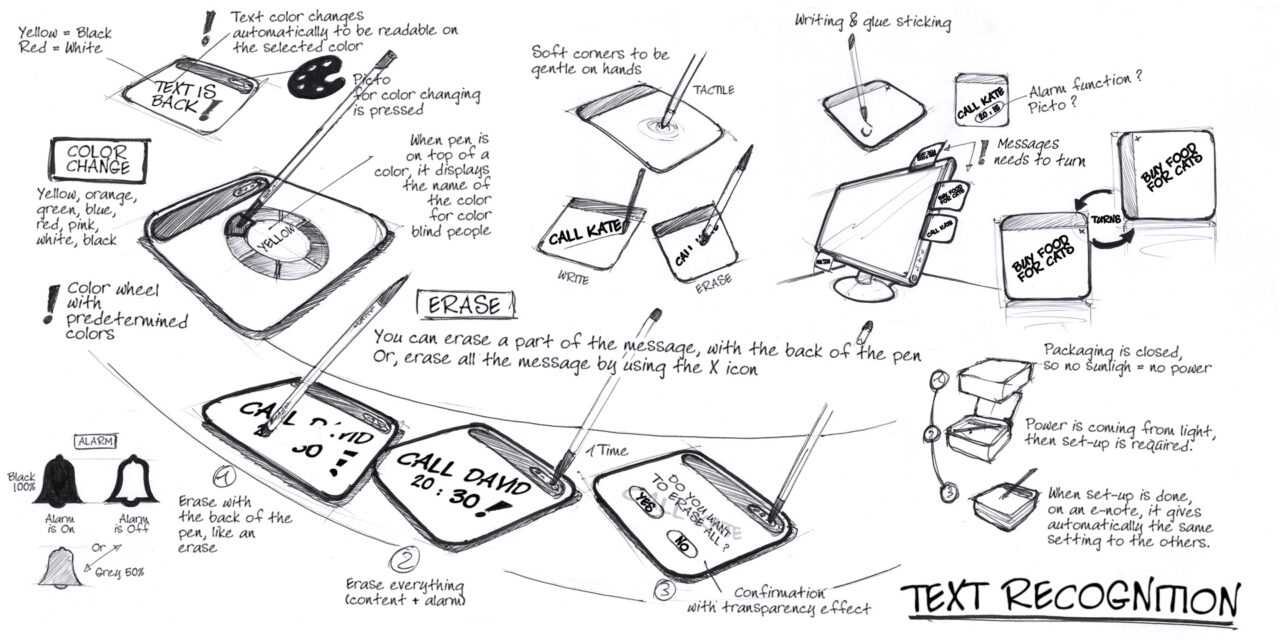 Yellow = Black
Red = White
Text color changes
automatically to be readable on
the selected color
TEXT IS
BACK!
Picto
for color changing
is pressed
COLOR
CHANGE
Yellow, orange,
green, blue,
red, pink,
white, black
When pen is
on top of a
color, it displays
the name of
the color
for color
blind people
YELLOW
! Color wheel
with
predetermined
colors
Soft corners to be
gentle on hands
TACTILE
CALL KATE
WRITE
CALL
ERASE
Writing & glue sticking
CALL KATE
20:15
Alarm function?
Picto?
! Messages
needs to turn
BUY FOOD
FOR CATS
CALL KATE
BUY FOOD
FOR CATS
TURNS
BUY FOOD
FOR CATS
ERASE
You can erase a part of the message, with the back of the pen
Or, erase all the message by using the X icon
CALL DAVID
30
1
Erase with
the back of the
pen, like an
erase
CALL DAVID
20:30!
2
Erase everything
(content + alarm)
1 Time
DO YOU WANT
TO ERASE ALL?
YES
NO
3
Confirmation
with transparency effect
ALARM
Black
100%
Alarm
is On
Alarm
is Off
Or
Grey 50%
1
Packaging is closed,
so no sunligh = no power
2
Power is coming from light,
then set-up is required.
3
When set-up is done,
on an e-note, it gives
automatically the same
setting to the others.
TEXT RECOGNITION